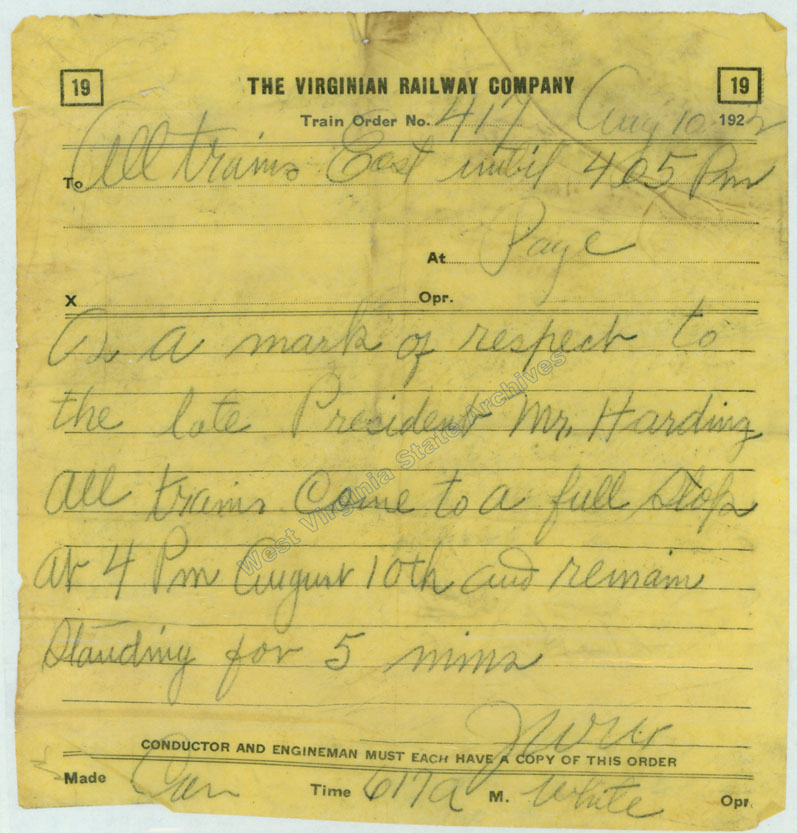 19 THE VIRGINIAN RAILWAY COMPANY 19
Train Order No. 417 Aug 10 192
To All trains East until 405 Pm
At Page
X Opr.
As a mark of respect to
the late President Mr. Harding
All trains Come to a full Stop
at 4 Pm August 10th and remain
Standing for 5 mins
CONDUCTOR AND ENGINEMAN MUST EACH HAVE A COPY OF THIS ORDER
Made Com Time 617a M. White Opr.
West Virginia State Archives